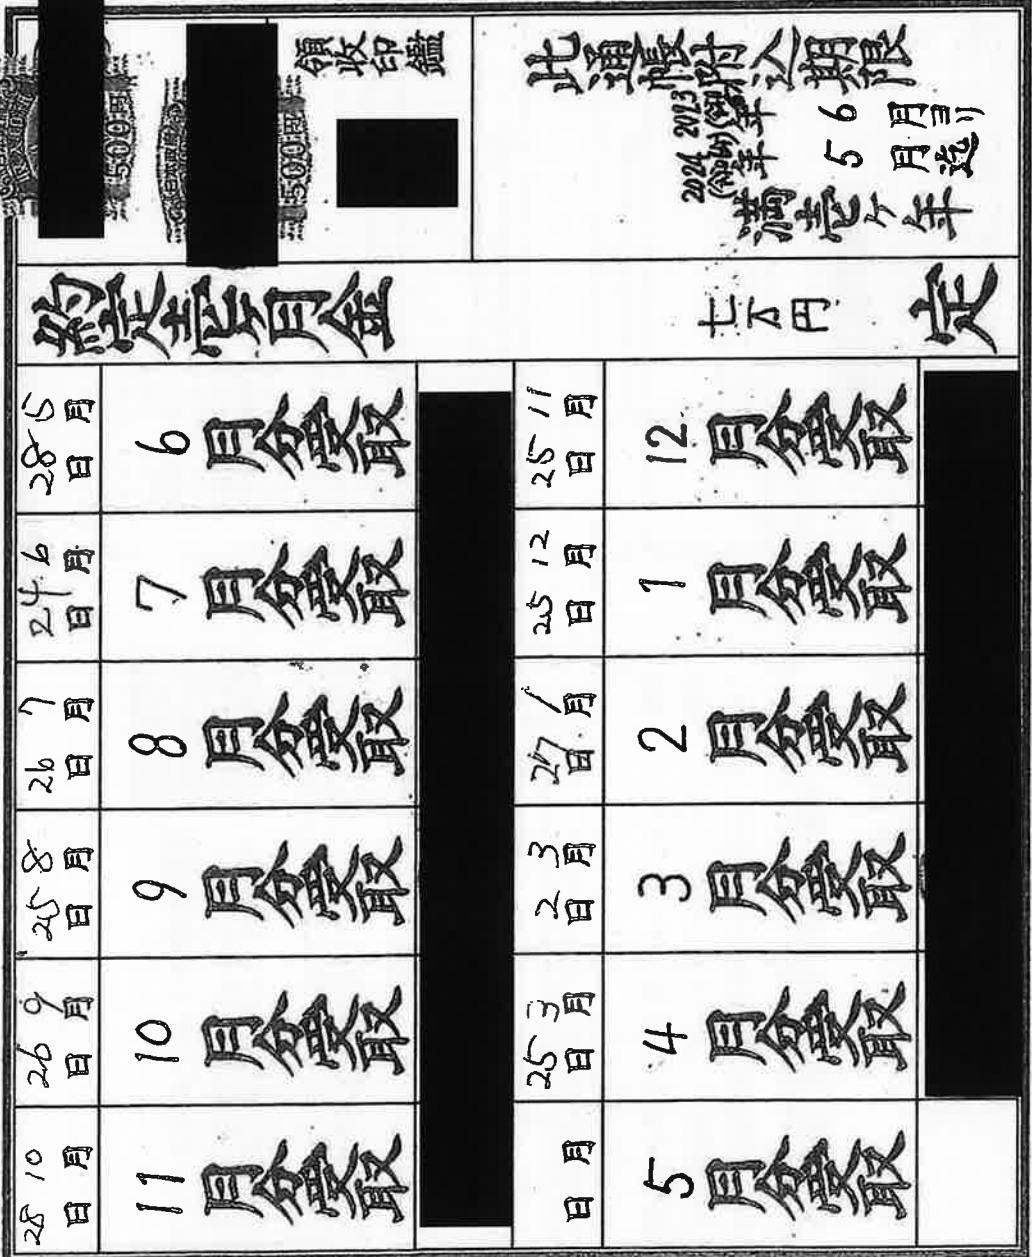 此通帳附込期限
2023(令和5)年6月ヨリ
2024(令和6)年5月迄
満壱ケ年
領收印鑑
500円
500円
約定壱ケ月金 七五円 定
5月28日 6月分受取
6月24日 7月分受取
7月26日 8月分受取
8月25日 9月分受取
9月26日 10月分受取
10月28日 11月分受取
11月25日 12月分受取
12月25日 1月分受取
1月27日 2月分受取
3月2日 3月分受取
3月25日 4月分受取
月 日 5月分受取